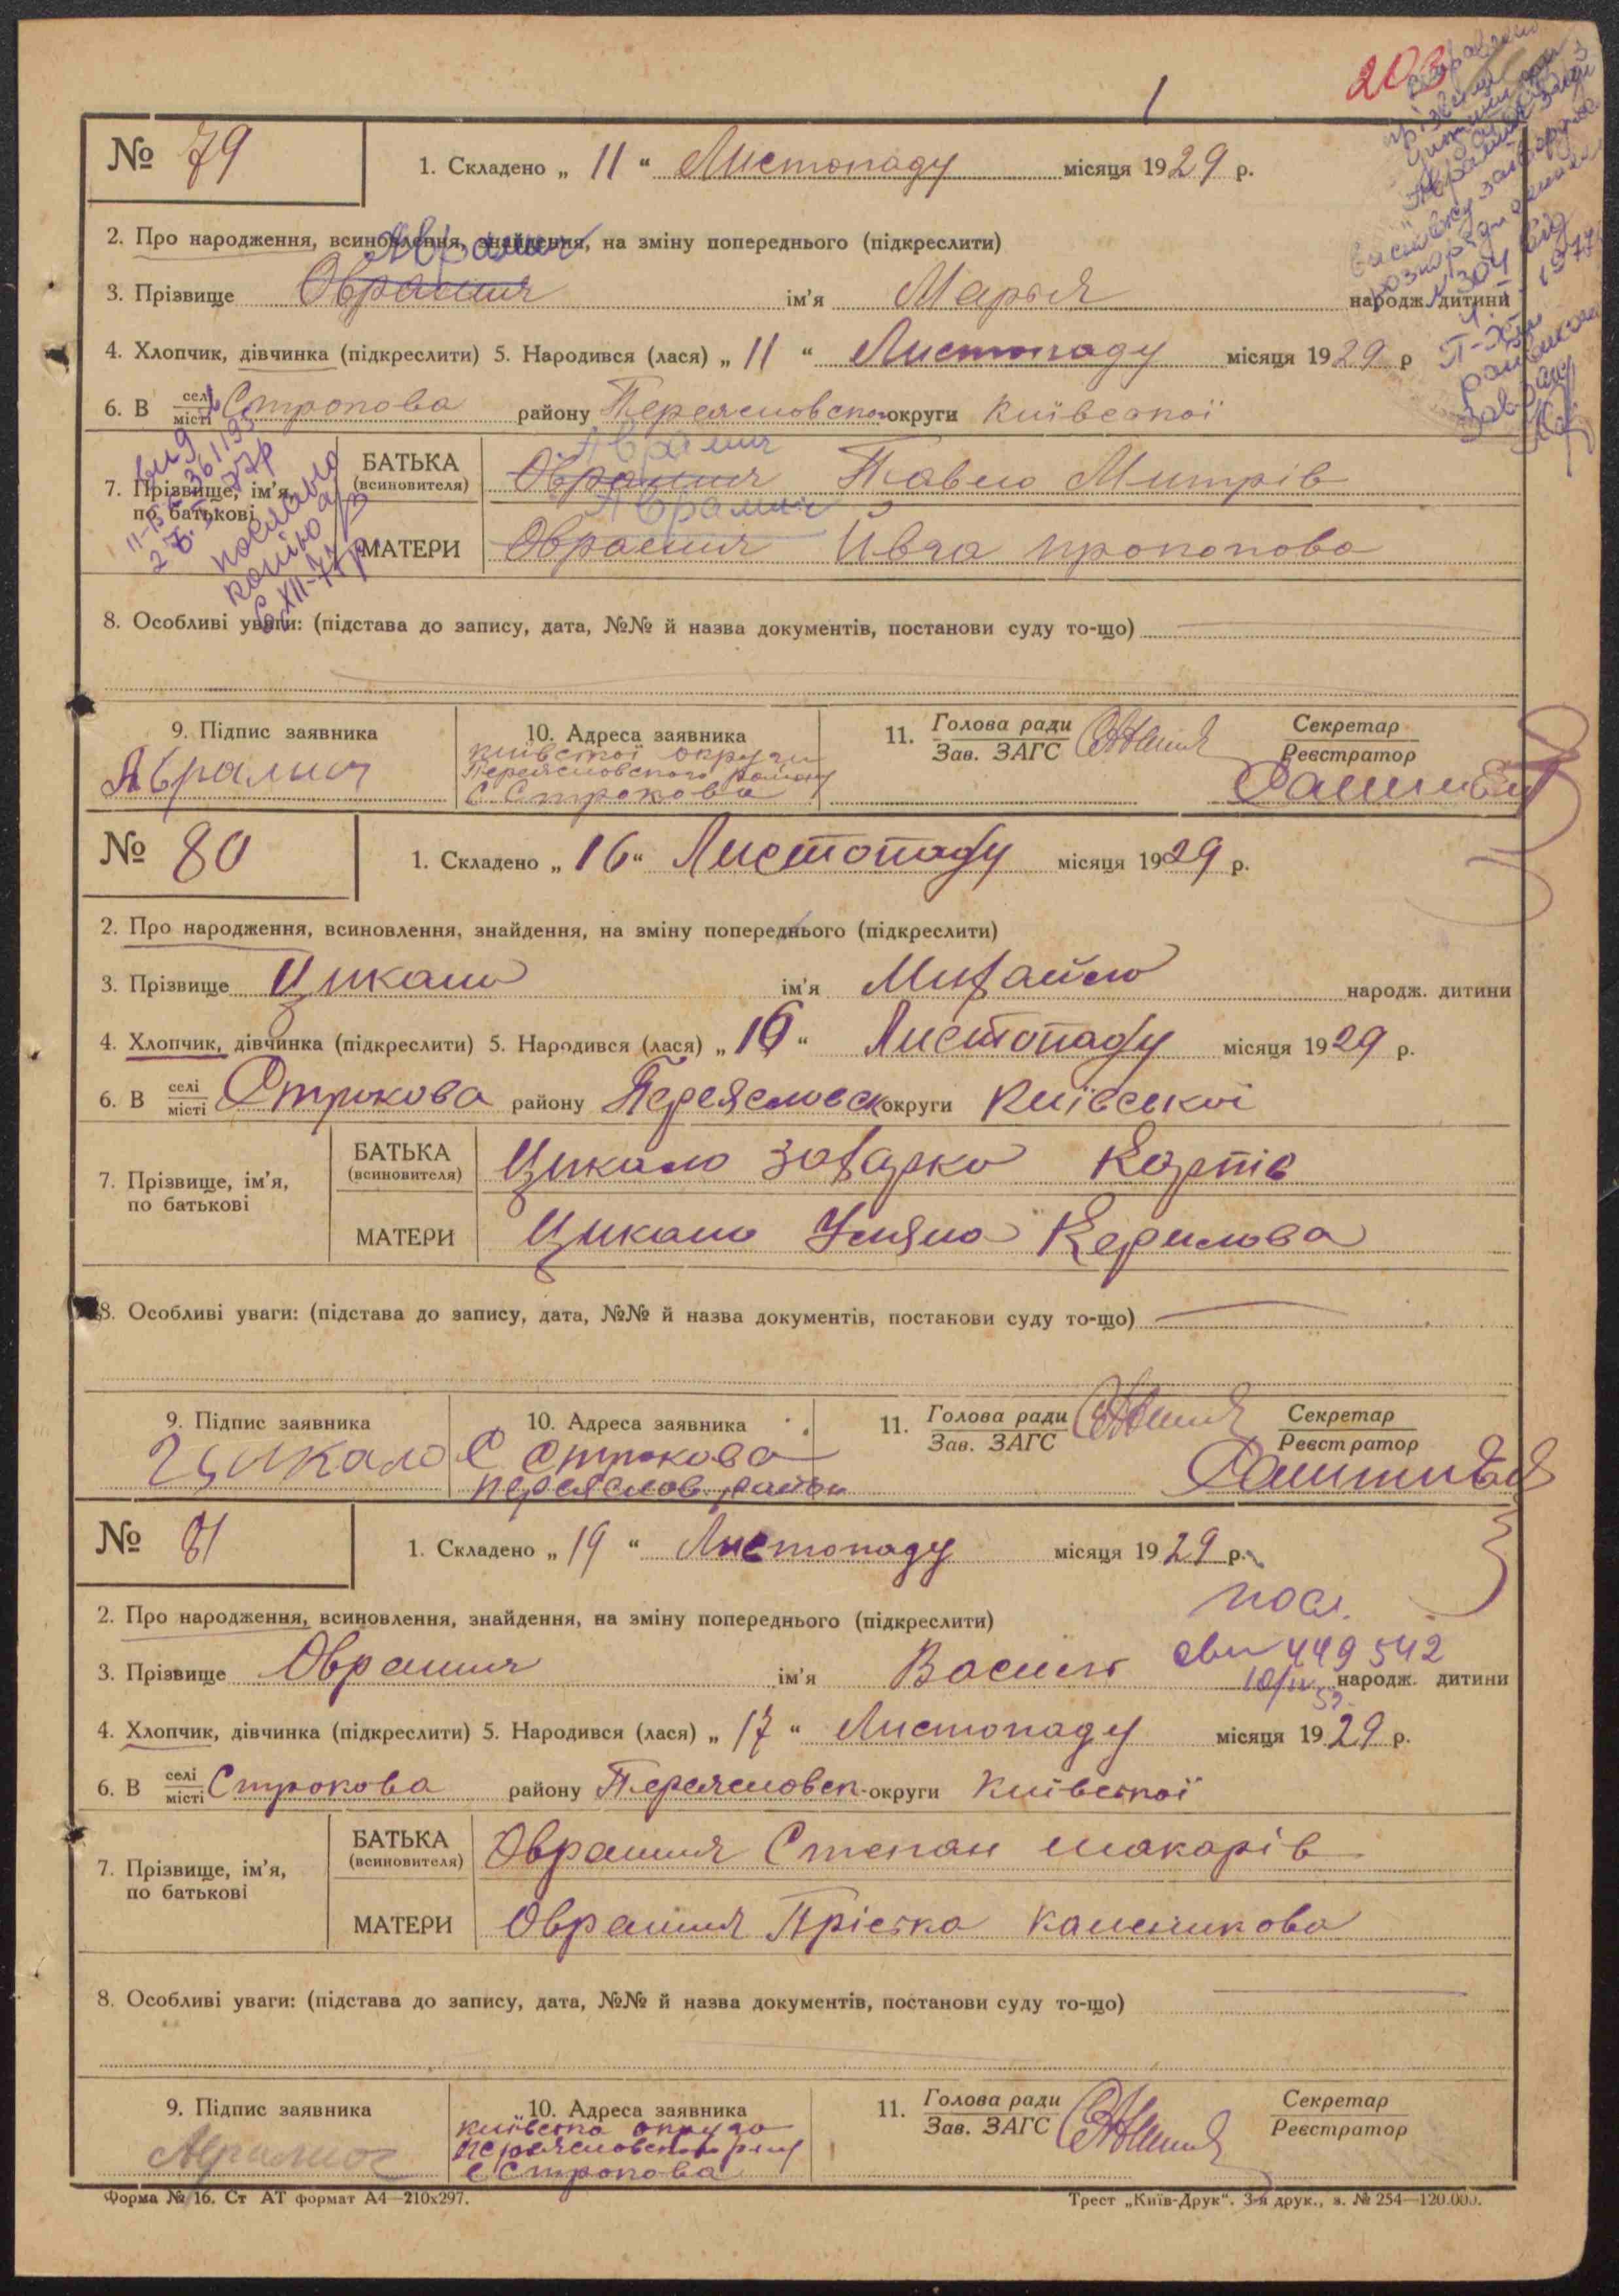 203
1
№ 79
1. Складено „ 11 “ Листопаду місяця 1929 р.
2. Про народження, всиновлення, знайдення, на зміну попереднього (підкреслити)
Аврамич
3. Прізвище Оврамич ім'я Марія народж. дитини
4. Хлопчик, дівчинка (підкреслити) 5. Народився (лася) „ 11 “ Листопаду місяця 1929 р
6. В селі місті Строкова району Переясловсько округи Київської
Аврамич
7. Прізвище, ім'я, по батькові
БАТЬКА (всиновителя) Оврамич Павло Митрів
Аврамич
МАТЕРИ Оврамич Ївга Прокопова
8. Особливі уваги: (підстава до запису, дата, №№ й назва документів, постанови суду то-що)
9. Підпис заявника
Аврамич
10. Адреса заявника
Київської округи
Переясловського району
С Строкова
11. Голова ради
Зав. ЗАГС
Секретар
Реєстратор
№ 80
1. Складено „ 16 “ Листопаду місяця 1929 р.
2. Про народження, всиновлення, знайдення, на зміну попереднього (підкреслити)
3. Прізвище Цикало ім'я Михайло народж. дитини
4. Хлопчик, дівчинка (підкреслити) 5. Народився (лася) „ 16 “ Листопаду місяця 1929 р.
6. В селі місті Строкова району Переясловск округи Київської
7. Прізвище, ім'я, по батькові
БАТЬКА (всиновителя) Цикало Захарко Карпів
МАТЕРИ Цикало Уляна Керилова
8. Особливі уваги: (підстава до запису, дата, №№ й назва документів, постанови суду то-що)
9. Підпис заявника
Цикало
10. Адреса заявника
С Строкова
Переяслов. район
11. Голова ради
Зав. ЗАГС
Секретар
Реєстратор
№ 81
1. Складено „ 19 “ Листопаду місяця 1929 р.
2. Про народження, всиновлення, знайдення, на зміну попереднього (підкреслити)
посл.
449542
3. Прізвище Оврамич ім'я Василь народж. дитини
4. Хлопчик, дівчинка (підкреслити) 5. Народився (лася) „ 17 “ Листопаду місяця 1929 р.
6. В селі місті Строкова району Переясловск-округи Київської
7. Прізвище, ім'я, по батькові
БАТЬКА (всиновителя) Оврамич Степан Макарів
МАТЕРИ Оврамич Пріська
8. Особливі уваги: (підстава до запису, дата, №№ й назва документів, постанови суду то-що)
9. Підпис заявника
10. Адреса заявника
Київська округа
С Строкова
11. Голова ради
Зав. ЗАГС
Секретар
Реєстратор
Форма № 16. Ст АТ формат А4—210х297.
Трест „Київ-Друк“. 3-я друк., з. № 254—120.000.